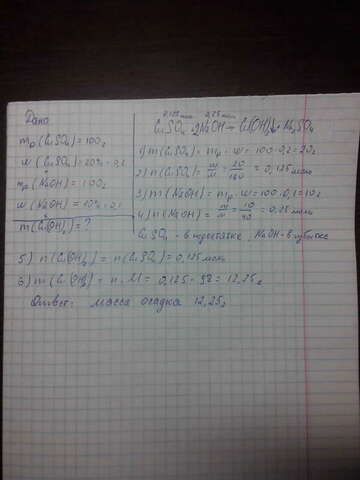 Дано
mр(CuSO₄)=100г
w(CuSO₄)=20%=0,2
mр(NaOH)=100г
w(NaOH)=10%=0,1
m(Cu(OH)₂)=?
0,125моль 0,25моль
CuSO₄+2NaOH→Cu(OH)₂↓+Na₂SO₄
1) m(CuSO₄)=mр·w=100·0,2=20г
2) n(CuSO₄)=m/M=20/160=0,125моль
3) m(NaOH)=mр·w=100·0,1=10г
4) n(NaOH)=m/M=10/40=0,25моль
CuSO₄-в недостатке, NaOH-в избытке
5) n(Cu(OH)₂)=n(CuSO₄)=0,125моль
6) m(Cu(OH)₂)=n·M=0,125·98=12,25г
Ответ: масса осадка 12,25г